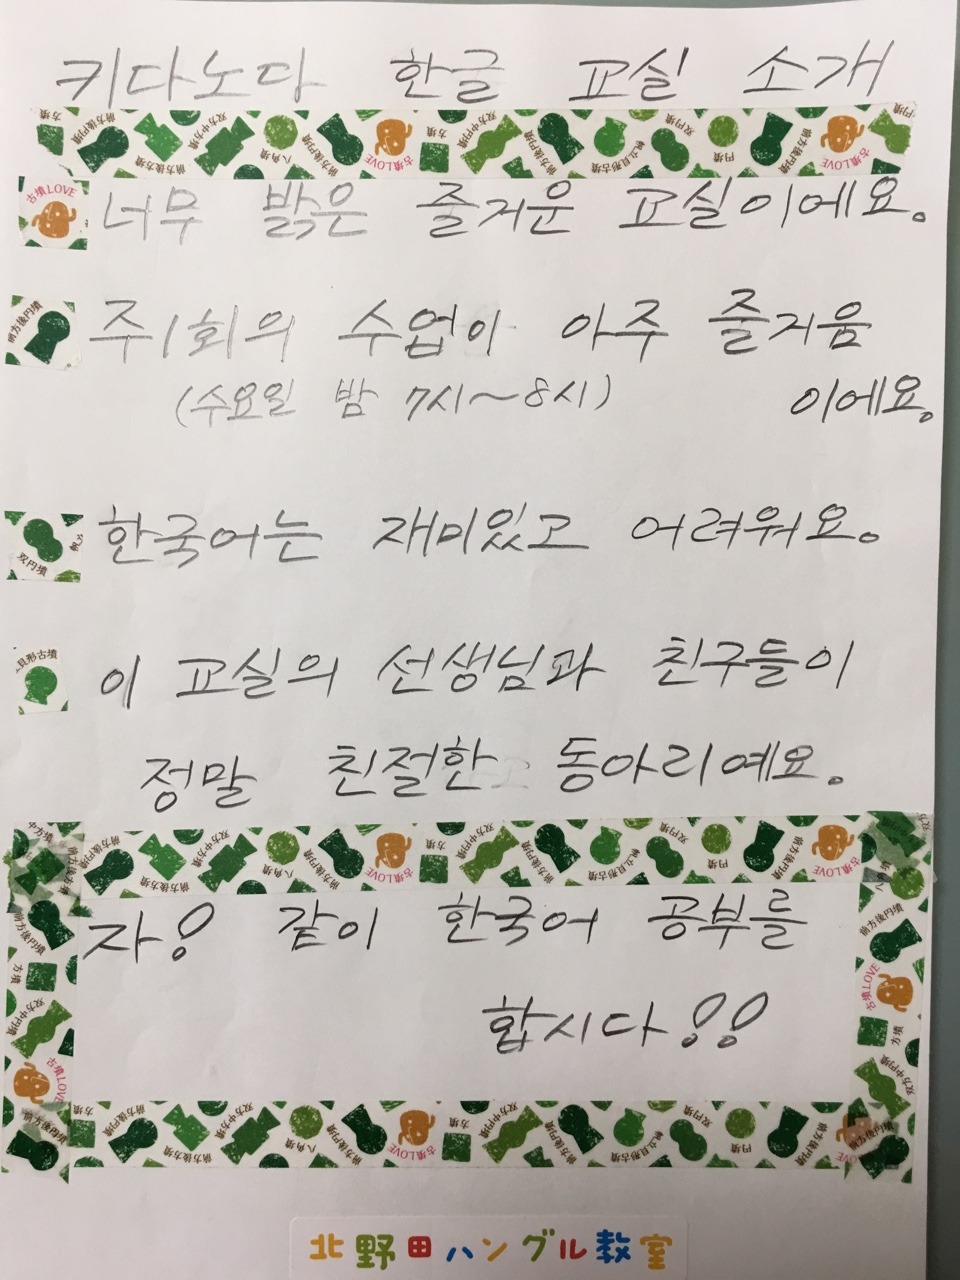 키다노다 한글 교실 소개
너무 밝은 즐거운 교실이에요。
주1회의 수업이 아주 즐거움
(수요일 밤 7시~8시) 이에요。
한국어는 재미있고 어려워요。
이 교실의 선생님과 친구들이
정말 친절한 동아리예요。
자! 같이 한국어 공부를
합시다!!
北野田ハングル教室